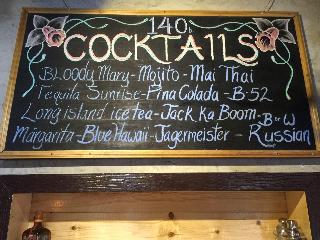 140฿
COCKTAILS
BLOODY Mary - Mojito - Mai Thai
Tequila Sunrise - Pina Colada - B-52
Long island ice tea - Jack ka Boom - B or W
Margarita - Blue Hawaii - Jagermeister - Russian